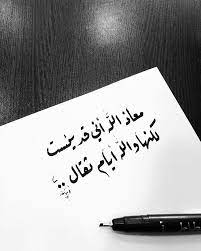 معاذ الله أني قد يئست
لكنها والله أيام ثقال ..